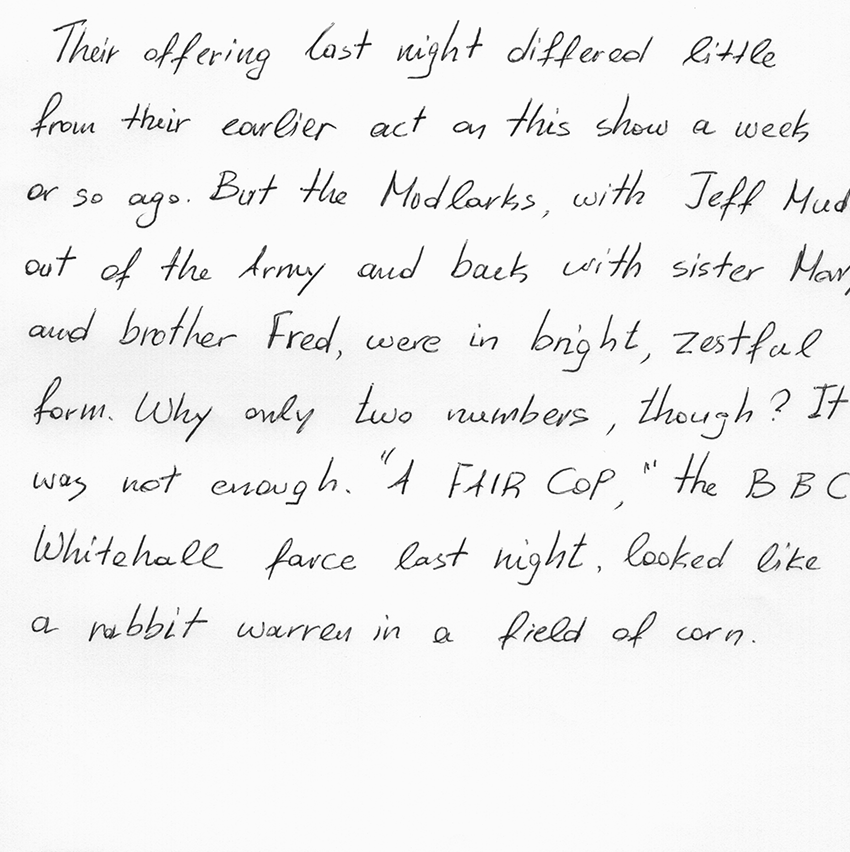 Their offering last night differed little
from their earlier act on this show a week
or so ago. But the Modlarks, with Jeff Mud
out of the Army and back with sister Mary
and brother Fred, were in bright, zestful
form. Why only two numbers, though? It
was not enough. "A FAIR COP," the BBC
Whitehall farce last night, looked like
a rabbit warren in a field of corn.